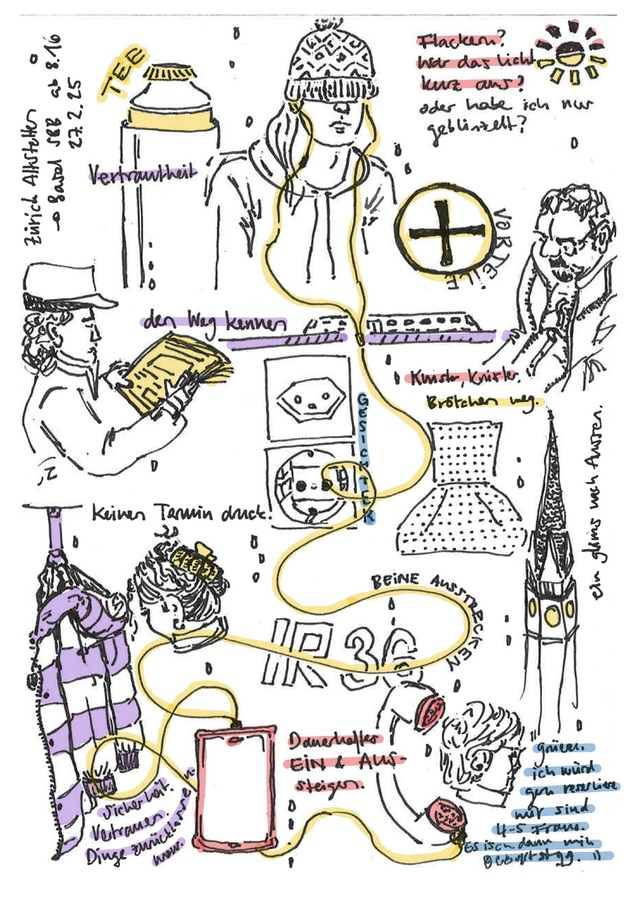 Zürich Altstetten
→ Basel SBB ab 8.16
27.2.25
TEE
Flackern?
War das Licht
kurz aus?
oder habe ich nur
geblinzelt?
Vertrautheit
VORTEILE
den Weg kennen
Knister Knister.
Brötchen weg.
GESICHTER
ein gleis nach Aussen.
Keinen Termin druck.
BEINE AUSSTRECKEN
IR 36
Dauerhaftes
EIN & AUS-
steigen.
Sicherheit.
Vertrauen
Dinge zurücklassen
ich würd
gern reserviere
mir sind
4-5 Fraue.
Es isch dann mis